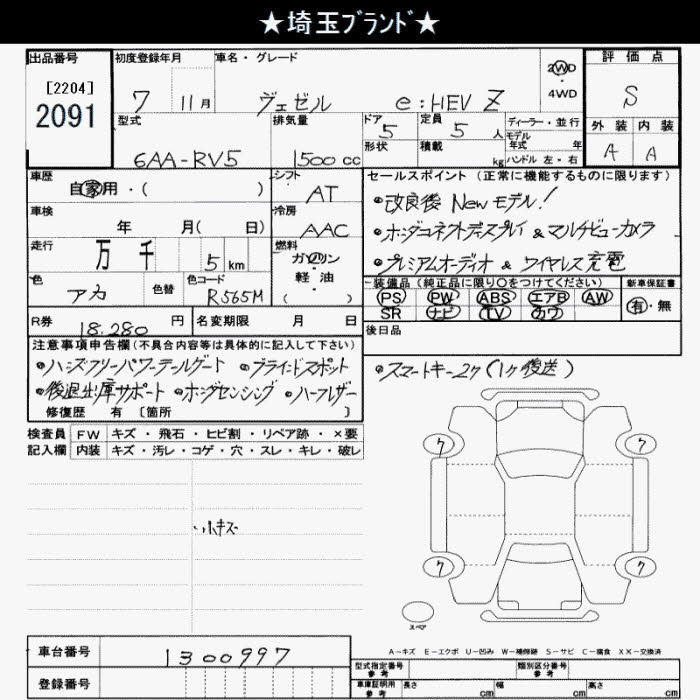 ★埼玉ブランド★
出品番号 初度登録年月 車名・グレード 評価点
[2204] 2091
7 11月 ヴェゼル e:HEV Z 2WD・4WD S
型式 排気量 ドア 5 定員 5人 ディーラー・並行 外装 内装
モデル年式 年
6AA-RV5 1500cc 形状 積載 kg ハンドル 左・右 A A
車歴 シフト セールスポイント(正常に機能するものに限ります)
自家用・( ) AT ・改良後 Newモデル!
車検 冷房
年 月( 日) AAC ・ホンダコネクトディスプレイ & マルチビューカメラ
走行 燃料
万 千 5km ガソリン・軽油 ( ) ・プレミアムオーディオ & ワイヤレス充電
色 色替 色コード 装備品(純正品に限り○をつけてください) 新車保証書
アカ R565M PS PW ABS エアB AW 有・無
SR ナビ TV カワ
R券 18.280円 名変期限 月 日 後日品
注意事項申告欄(不具合内容等は具体的に記入して下さい)
・ハンズフリーパワーテールゲート ・ブラインドスポット ・スマートキー2ケ(1ケ後送)
・後退出庫サポート ・ホンダセンシング ・ハーフレザー
修復歴 有 [箇所 ]
検査員 FW キズ・飛石・ヒビ割・リペア跡・×要
記入欄 内装 キズ・汚レ・コゲ・穴・スレ・キレ・破レ
ワ ワ
・小キズ
ワ ワ
スペア
A-キズ E-エクボ U-凹み W-補修跡 S-サビ C-腐食 XX-交換済
車台番号 1300997 型式指定番号 参考 類別区分番号 参考
登録番号 車庫証明用 参考 長さ cm 幅 cm 高さ cm